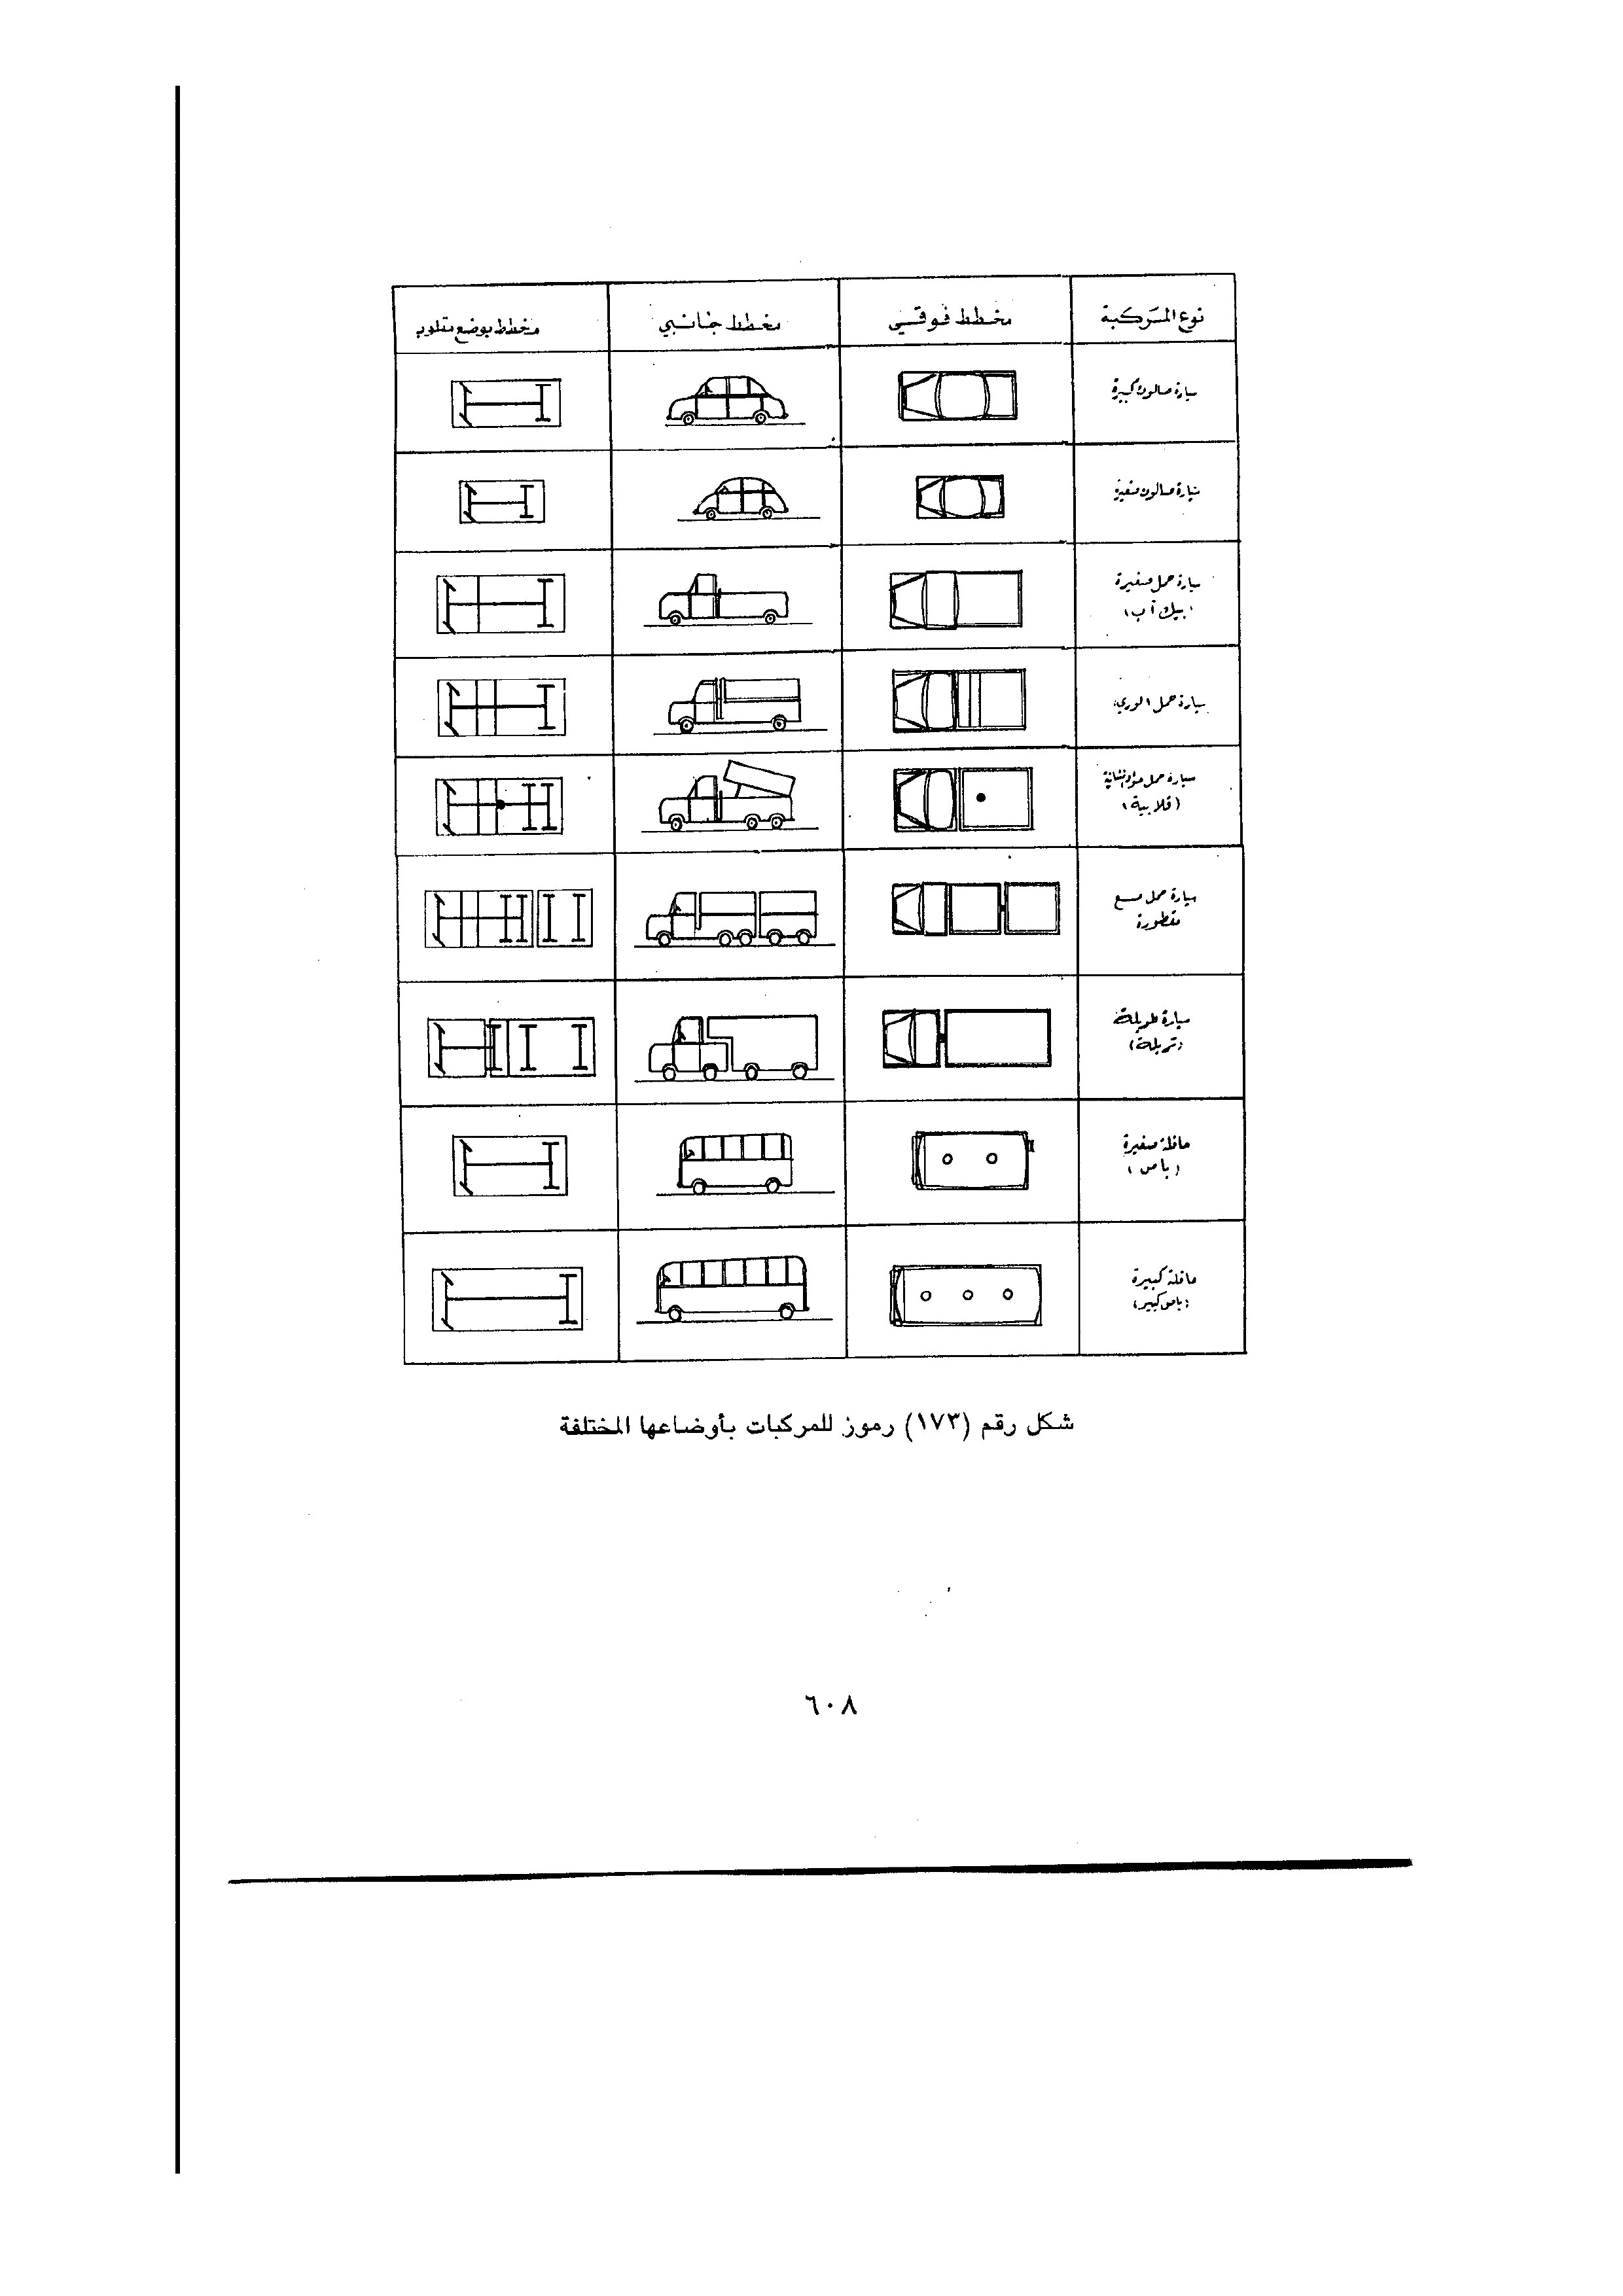 نوع المركبة
مخطط فوقي
مخطط جانبي
مخطط بوضع مقلوب
سيارة صالون كبيرة
سيارة صالون صغيرة
سيارة حمل صغيرة
(بيك آب)
سيارة حمل (لوري)
سيارة حمل مواد انشائية
(قلابية)
سيارة حمل مع
مقطورة
سيارة طويلة
(تريلة)
حافلة صغيرة
(باص)
حافلة كبيرة
(باص كبير)
شكل رقم (١٧٣) رموز للمركبات بأوضاعها المختلفة
٦٠٨